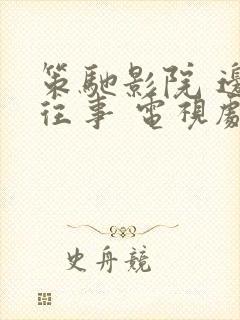 策馳影院 邊
往事 電視處
史舟競